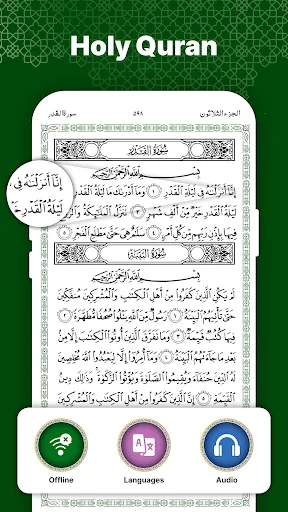 Holy Quran
سورة القدر ٥٩٨ الجزء الثلاثون
سُورَةُ القَدْرِ
بِسْمِ اللَّهِ الرَّحْمَٰنِ الرَّحِيمِ
إِنَّا أَنزَلْنَٰهُ فِى
لَيْلَةُ ٱلْقَدْرِ خَيْ
إِنَّا أَنزَلْنَٰهُ فِى لَيْلَةِ ٱلْقَدْرِ ١ وَمَآ أَدْرَىٰكَ مَا لَيْلَةُ
ٱلْقَدْرِ ٢ لَيْلَةُ ٱلْقَدْرِ خَيْرٌ مِّنْ أَلْفِ شَهْرٍ ٣ تَنَزَّلُ ٱلْمَلَٰٓئِكَةُ وَٱلرُّوحُ
فِيهَا بِإِذْنِ رَبِّهِم مِّن كُلِّ أَمْرٍ ٤ سَلَٰمٌ هِىَ حَتَّىٰ مَطْلَعِ ٱلْفَجْرِ ٥
سُورَةُ البَيِّنَةِ
بِسْمِ اللَّهِ الرَّحْمَٰنِ الرَّحِيمِ
لَمْ يَكُنِ ٱلَّذِينَ كَفَرُوا۟ مِنْ أَهْلِ ٱلْكِتَٰبِ وَٱلْمُشْرِكِينَ مُنفَكِّينَ
حَتَّىٰ تَأْتِيَهُمُ ٱلْبَيِّنَةُ ١ رَسُولٌ مِّنَ ٱللَّهِ يَتْلُوا۟ صُحُفًا مُّطَهَّرَةً ٢
فِيهَا كُتُبٌ قَيِّمَةٌ ٣ وَمَا تَفَرَّقَ ٱلَّذِينَ أُوتُوا۟ ٱلْكِتَٰبَ إِلَّا مِنۢ
بَعْدِ مَا جَآءَتْهُمُ ٱلْبَيِّنَةُ ٤ وَمَآ أُمِرُوٓا۟ إِلَّا لِيَعْبُدُوا۟ ٱللَّهَ مُخْلِصِينَ
لَهُ ٱلدِّينَ حُنَفَآءَ وَيُقِيمُوا۟ ٱلصَّلَوٰةَ وَيُؤْتُوا۟ ٱلزَّكَوٰةَ وَذَٰلِكَ دِينُ
ٱلْقَيِّمَةِ ٥ إِنَّ ٱلَّذِينَ كَفَرُوا۟ مِنْ أَهْلِ ٱلْكِتَٰبِ وَٱلْمُشْرِكِينَ
Offline
Languages
Audio